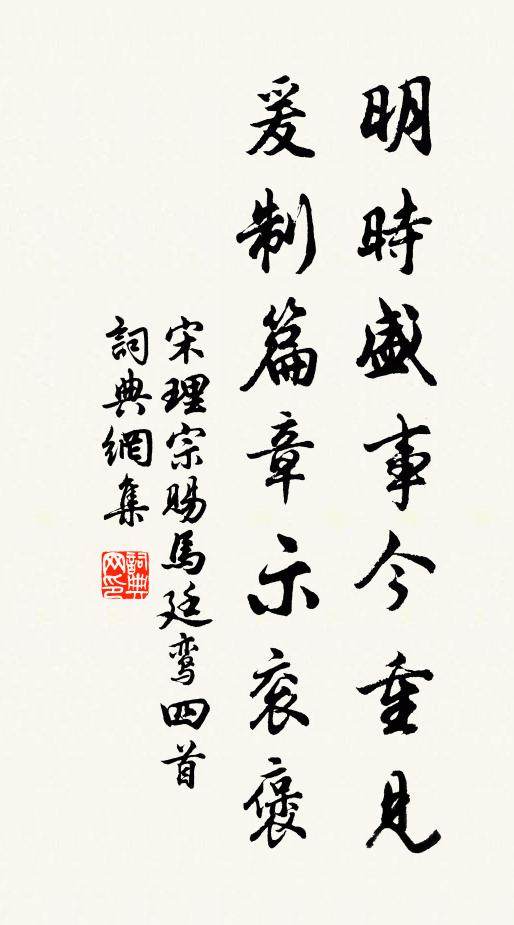 明時盛事今重見
爰制篇章示衮褒
宋理宗賜馬廷鸾四首
詞典網集
詞典网印